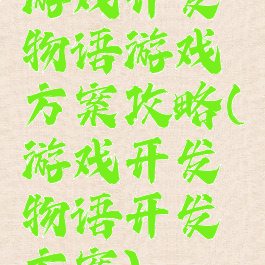 游戏开发
物语游戏
方案攻略(
游戏开发
物语开发
方案)